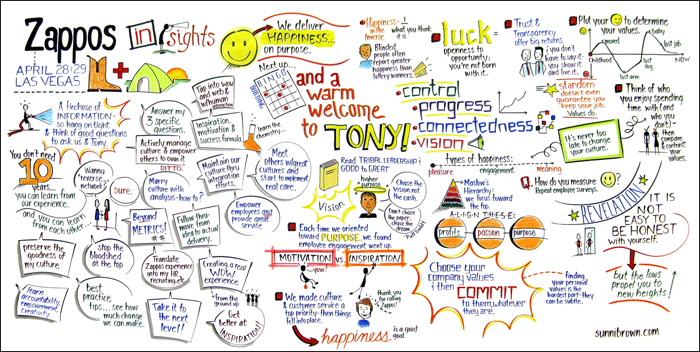 Zappos insights
APRIL 28:29
LAS VEGAS
We deliver
HAPPINESS...
on purpose.
Next up...
BINGO
and a
warm
welcome
to
TONY!
A firehose of
INFORMATION-
so hang on tight
& think of good questions
to ask us & Tony.
Answer my
3 specific
questions.
Tap into wow
and web &
w/human
interaction
Inspiration,
motivation &
success formula
learn the
chemistry!
Actively manage
culture & empower
others to own it
DITTO.
Maintain our
culture thru
integration
efforts.
Meet
others w/great
cultures and
start to implement
real care.
You don't need
10
years...
you can learn from
our experience.
...and you can learn
from each other...
Wanna
"reverse-
network"?
sure.
Marry
culture with
analysis-how?
Empower
employees and
elevate great
service
Beyond
METRICS!
Follow thru-
move from
idea to actual
delivery.
preserve the
goodness of
my culture
stop the
bloodshed
at the top
Translate
Zappos experience
into my HR,
recruiting etc.
Creating a real
WOW
experience
learn
accountability,
empowerment,
creativity
Best
practice
tips...see how
much change
we can make.
Take it to
the next
level!
"from the
ground up"
Get
better at
INSPIRATION!
Happiness-
is the
Inverse
what you think
it is.
Blinded
people often
report greater
happiness than
lottery winners.
luck=
openness to
opportunity;
you're not born
with it..
Trust &
Transparency
offer big returns.
you don't
have to say it-
you show it
and live it.
Plot your to determine
your values.
baby
married
last job
Childhood
lost
dog
last arm
NOW
control
progress
connectedness
vision
stardom
doesn't even
guarantee you
keep your job.
Values do.
Think of who
you enjoy spending
time with (and
who you
don't)
then
compare &
contrast
your
values.
It's never too
late to change
your culture.
Read TRIBAL LEADERSHIP &
GOOD to GREAT
higher
purpose
Vision
Chase the
vision not
the cash.
Don't
chase the
paper,
chase the
dream.
types of happiness:
pleasure
engagement.
meaning
Maslow's
Hierarchy:
we focus toward
the top.
Q. How do you measure?
Repeat employee surveys.
A-L-I-G-N T-H-E-S-E:
profits
passion
purpose
REVELATION
IT IS
NOT
EASY
TO BE
HONEST
with yourself.
but the lows
propel you to
new heights!
Each time we oriented
toward PURPOSE, we found
employee engagement went up.
MOTIVATION vs. INSPIRATION
yow!
We made culture
& customer service a
top priority-then things
fell into place.
thank you
for calling
Zappos!
happiness is a good
goal.
Choose your
company values
& then
COMMIT
to them, whatever
they are.
finding
your personal
values is the
hardest part-they
can be subtle.
sunnibrown.com